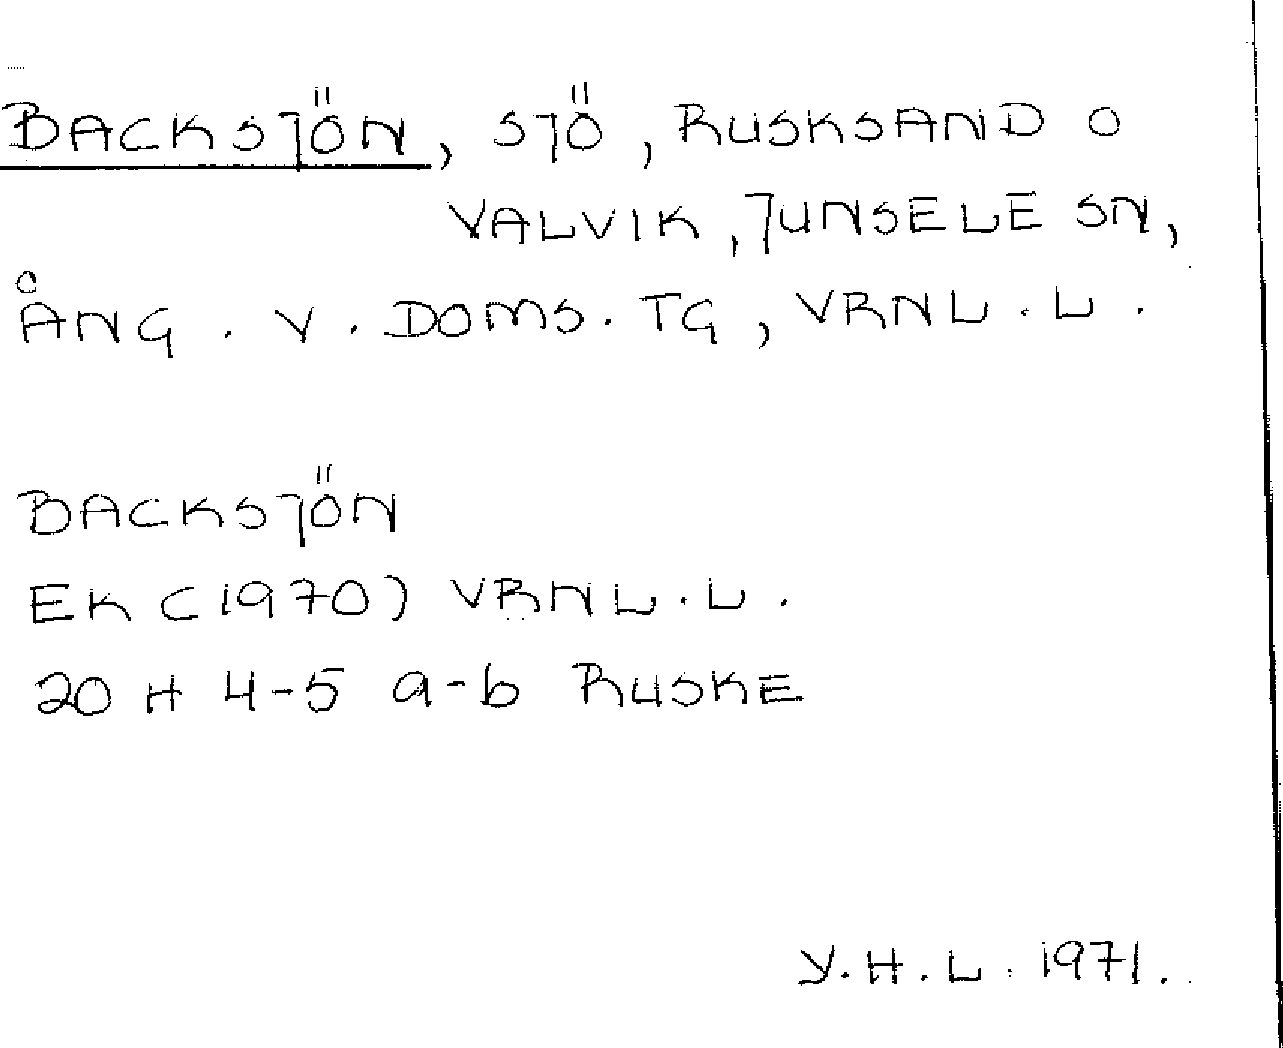 BACKSJÖN, SJÖ, RUSKSAND O
VALVIK, JUNSELE SN,
ÅNG. V. DOMS. TG, VRNL. L.
BACKSJÖN
EK (1970) VRNL. L.
20 H 4-5 a-b RUSKE
Y. H. L. 1971.